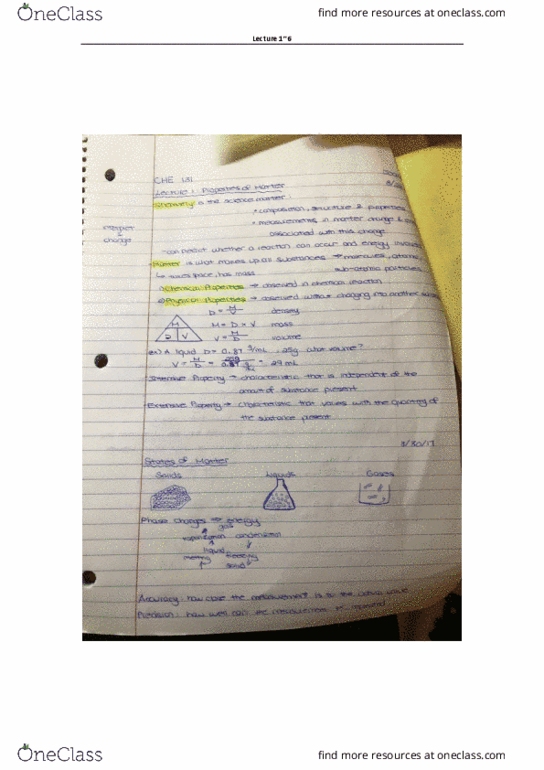 OneClass
find more resources at oneclass.com
Lecture 1~6
CHE 131
Lecture 1: Properties of Matter
Chemistry is the science matter
• composition, structure & properties
• measurements, in matter change &
interpret
&
change
associated with this change
*can predict whether a reaction can occur and energy
Matter is what makes up all substances → molecules, atoms
↳ takes space, has mass
sub-atomic particles
① Chemical Properties → observed in chemical reaction
② Physical Properties → observed without changing into another
D = M/V density
M = D × V mass
V = M/D volume
M
D V
ex) A liquid D = 0.87 g/mL, 25g what volume?
V = M/D = 25g / 0.87 g/mL = 29 mL
Intensive Property → characteristic that is independent of the
amount of substance present
Extensive Property → characteristic that varies with the quantity of
the substance present
8/30/17
States of Matter
Solids Liquids Gases
Phase Changes → energy
gas
vaporization condensation
liquid
melting freezing
solid
Accuracy: how close the measurement is to the actual value
Precision: how well can the measurement be repeated
OneClass
find more resources at oneclass.com